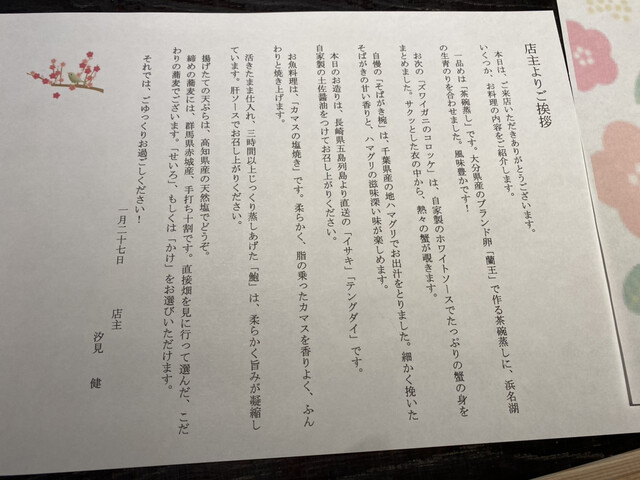 店主よりご挨拶
本日は、ご来店いただきありがとうございます。
いくつか、お料理の内容をご紹介します。
一品めは「茶碗蒸し」です。大分県産のブランド卵「蘭王」で作る茶碗蒸しに、浜名湖
の生青のりを合わせました。風味豊かです！
お次の「ズワイガニのコロッケ」は、自家製のホワイトソースでたっぷりの蟹の身を
まとめました。サクッとした衣の中から、熱々の蟹が覗きます。
自慢の「そばがき椀」は、千葉県産の地ハマグリでお出汁をとりました。細かく挽いた
そばがきの甘い香りと、ハマグリの滋味深い味が楽しめます。
本日のお造りは、長崎県五島列島より直送の「イサキ」「テングダイ」です。
自家製の土佐醤油をつけてお召し上がりください。
お魚料理は、「カマスの塩焼き」です。柔らかく、脂の乗ったカマスを香りよく、ふん
わりと焼き上げます。
活きたまま仕入れ、三時間以上じっくり蒸しあげた「鮑」は、柔らかく旨みが凝縮し
ています。肝ソースでお召し上がりください。
揚げたての天ぷらは、高知県産の天然塩でどうぞ。
締めの蕎麦には、群馬県赤城産、手打ち十割です。直接畑を見に行って選んだ、こだ
わりの蕎麦でございます。「せいろ」、もしくは「かけ」をお選びいただけます。
それでは、ごゆっくりお過ごしください！
一月二十七日
店主
汐見 健